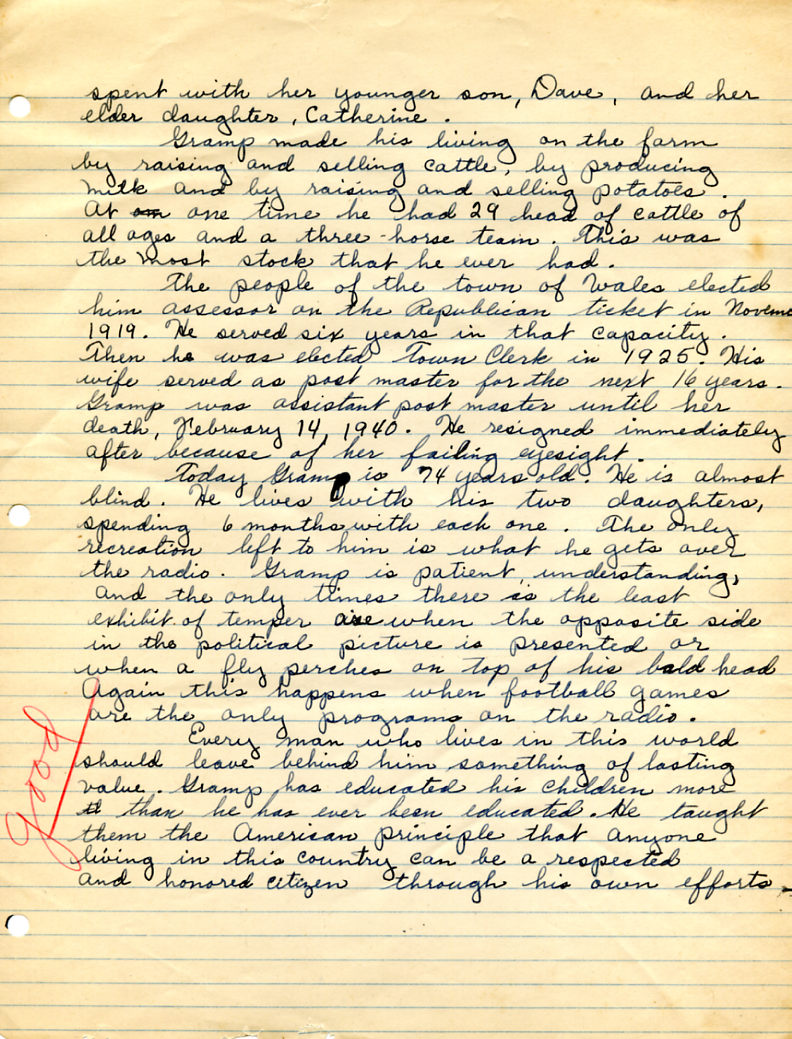 spent with her younger son, Dave, and her
elder daughter, Catherine.
Gramp made his living on the farm
by raising and selling cattle, by producing
milk and by raising and selling potatoes.
At one time he had 29 head of cattle of
all ages and a three-horse team. This was
the most stock that he ever had.
The people of the town of Wales elected
him assessor on the Republican ticket in Novem
1919. He served six years in that capacity.
Then he was elected Town Clerk in 1925. His
wife served as post master for the next 16 years.
Gramp was assistant post master until her
death, February 14, 1940. He resigned immediately
after because of her failing eyesight.
Today Gramp is 74 years old. He is almost
blind. He lives with his two daughters,
spending 6 months with each one. The only
recreation left to him is what he gets over
the radio. Gramp is patient, understanding,
and the only times there is the least
exhibit of temper are when the opposite side
in the political picture is presented or
when a fly perches on top of his bald head
Again this happens when football games
are the only programs on the radio.
Every man who lives in this world
should leave behind him something of lasting
value. Gramp has educated his children more
than he has ever been educated. He taught
them the American principle that anyone
living in this country can be a respected
and honored citizen through his own efforts.
good